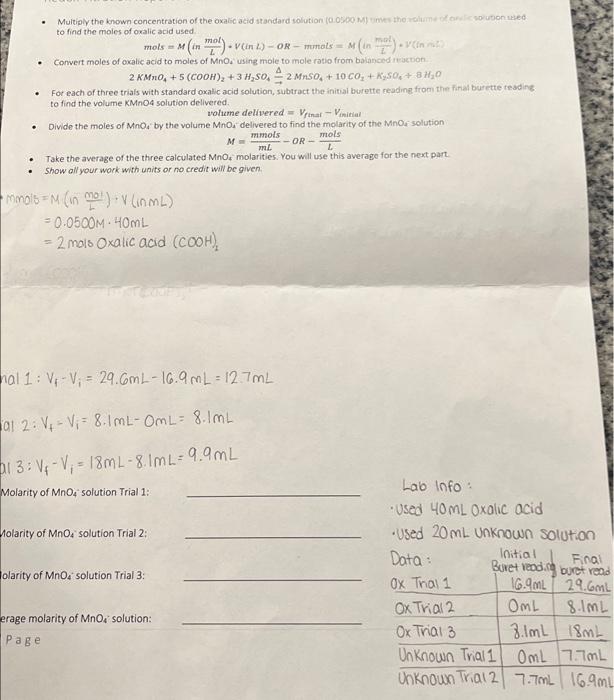 • Multiply the known concentration of the oxalic acid standard solution (0.0500 M) times the volume of oxalic solution used
to find the moles of oxalic acid used.
mols = M (in mol/L) * V(in L) - OR - mmols = M (in mol/L) * V(in mL)
• Convert moles of oxalic acid to moles of MnO₄⁻ using mole to mole ratio from balanced reaction.
2 KMnO₄ + 5 (COOH)₂ + 3 H₂SO₄ →^Δ 2 MnSO₄ + 10 CO₂ + K₂SO₄ + 8 H₂O
• For each of three trials with standard oxalic acid solution, subtract the initial burette reading from the final burette reading
to find the volume KMnO4 solution delivered.
volume delivered = V_final − V_initial
• Divide the moles of MnO₄⁻ by the volume MnO₄⁻ delivered to find the molarity of the MnO₄⁻ solution
M = mmols/mL - OR - mols/L
• Take the average of the three calculated MnO₄⁻ molarities. You will use this average for the next part.
• Show all your work with units or no credit will be given.
• mmols = M (in mol/L) • V (in mL)
= 0.0500M • 40mL
= 2 mols Oxalic acid (COOH)₂
rial 1: Vf - Vi = 29.6mL - 16.9mL = 12.7mL
ial 2: Vf - Vi = 8.1mL - 0mL = 8.1mL
al 3: Vf - Vi = 18mL - 8.1mL = 9.9mL
Molarity of MnO₄⁻ solution Trial 1:
Molarity of MnO₄⁻ solution Trial 2:
olarity of MnO₄⁻ solution Trial 3:
erage molarity of MnO₄⁻ solution:
Page
Lab Info:
• Used 40mL Oxalic acid
• Used 20mL Unknown solution
Data: Initial Buret reading Final buret read
Ox Trial 1 16.9mL 29.6mL
Ox Trial 2 0mL 8.1mL
Ox Trial 3 8.1mL 18mL
Unknown Trial 1 0mL 7.7mL
Unknown Trial 2 7.7mL 16.9mL